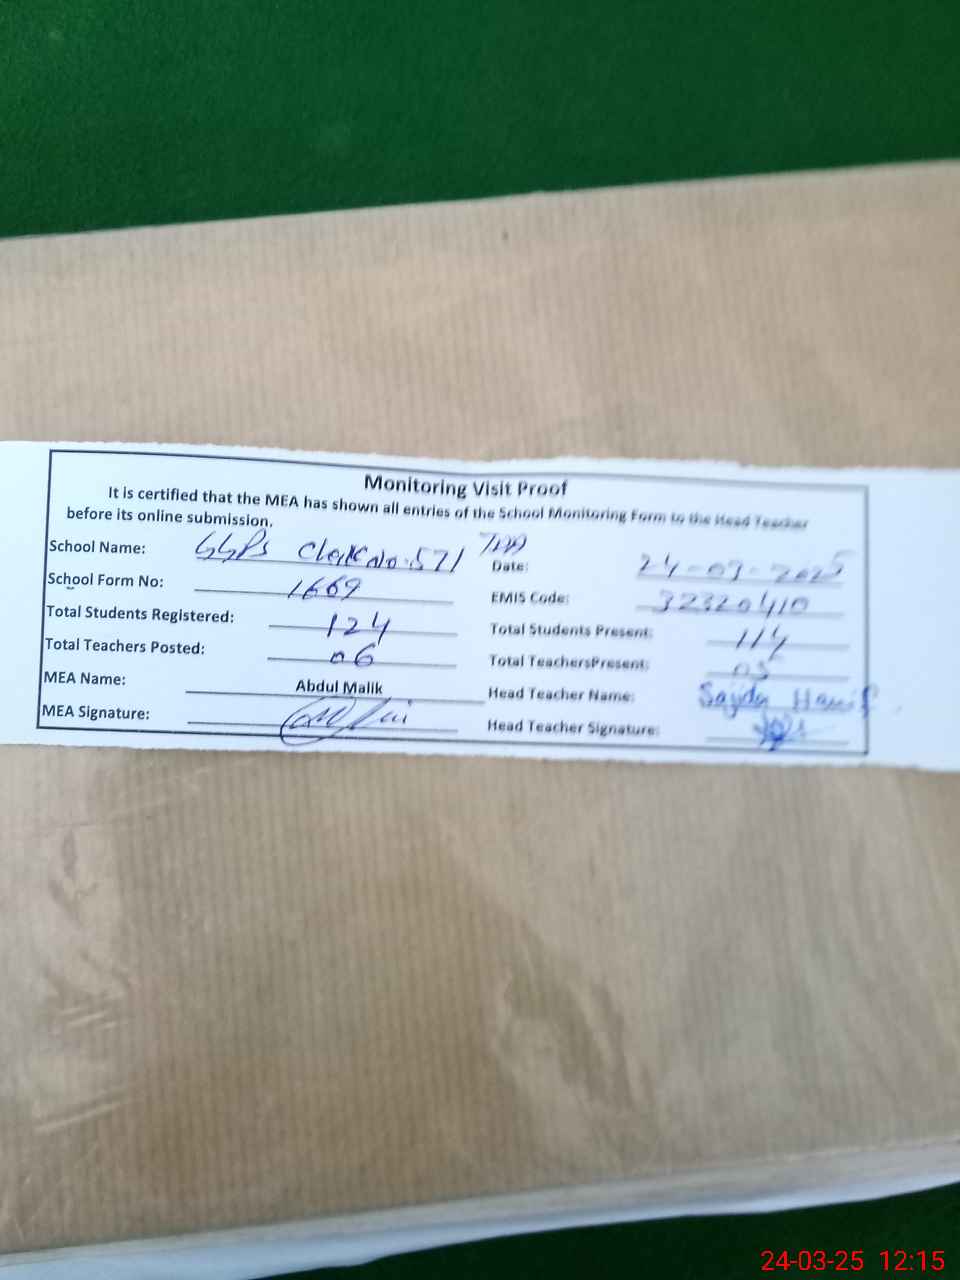 Monitoring Visit Proof
It is certified that the MEA has shown all entries of the School Monitoring Form to the Head Teacher
before its online submission.
School Name: GGPS Chak No. 571 TDA
Date: 24-03-2025
School Form No: 1669
EMIS Code: 32320410
Total Students Registered: 124
Total Students Present: 114
Total Teachers Posted: 06
Total TeachersPresent: 05
MEA Name: Abdul Malik
Head Teacher Name: Sajida Hanif
MEA Signature:
Head Teacher Signature:
24-03-25 12:15